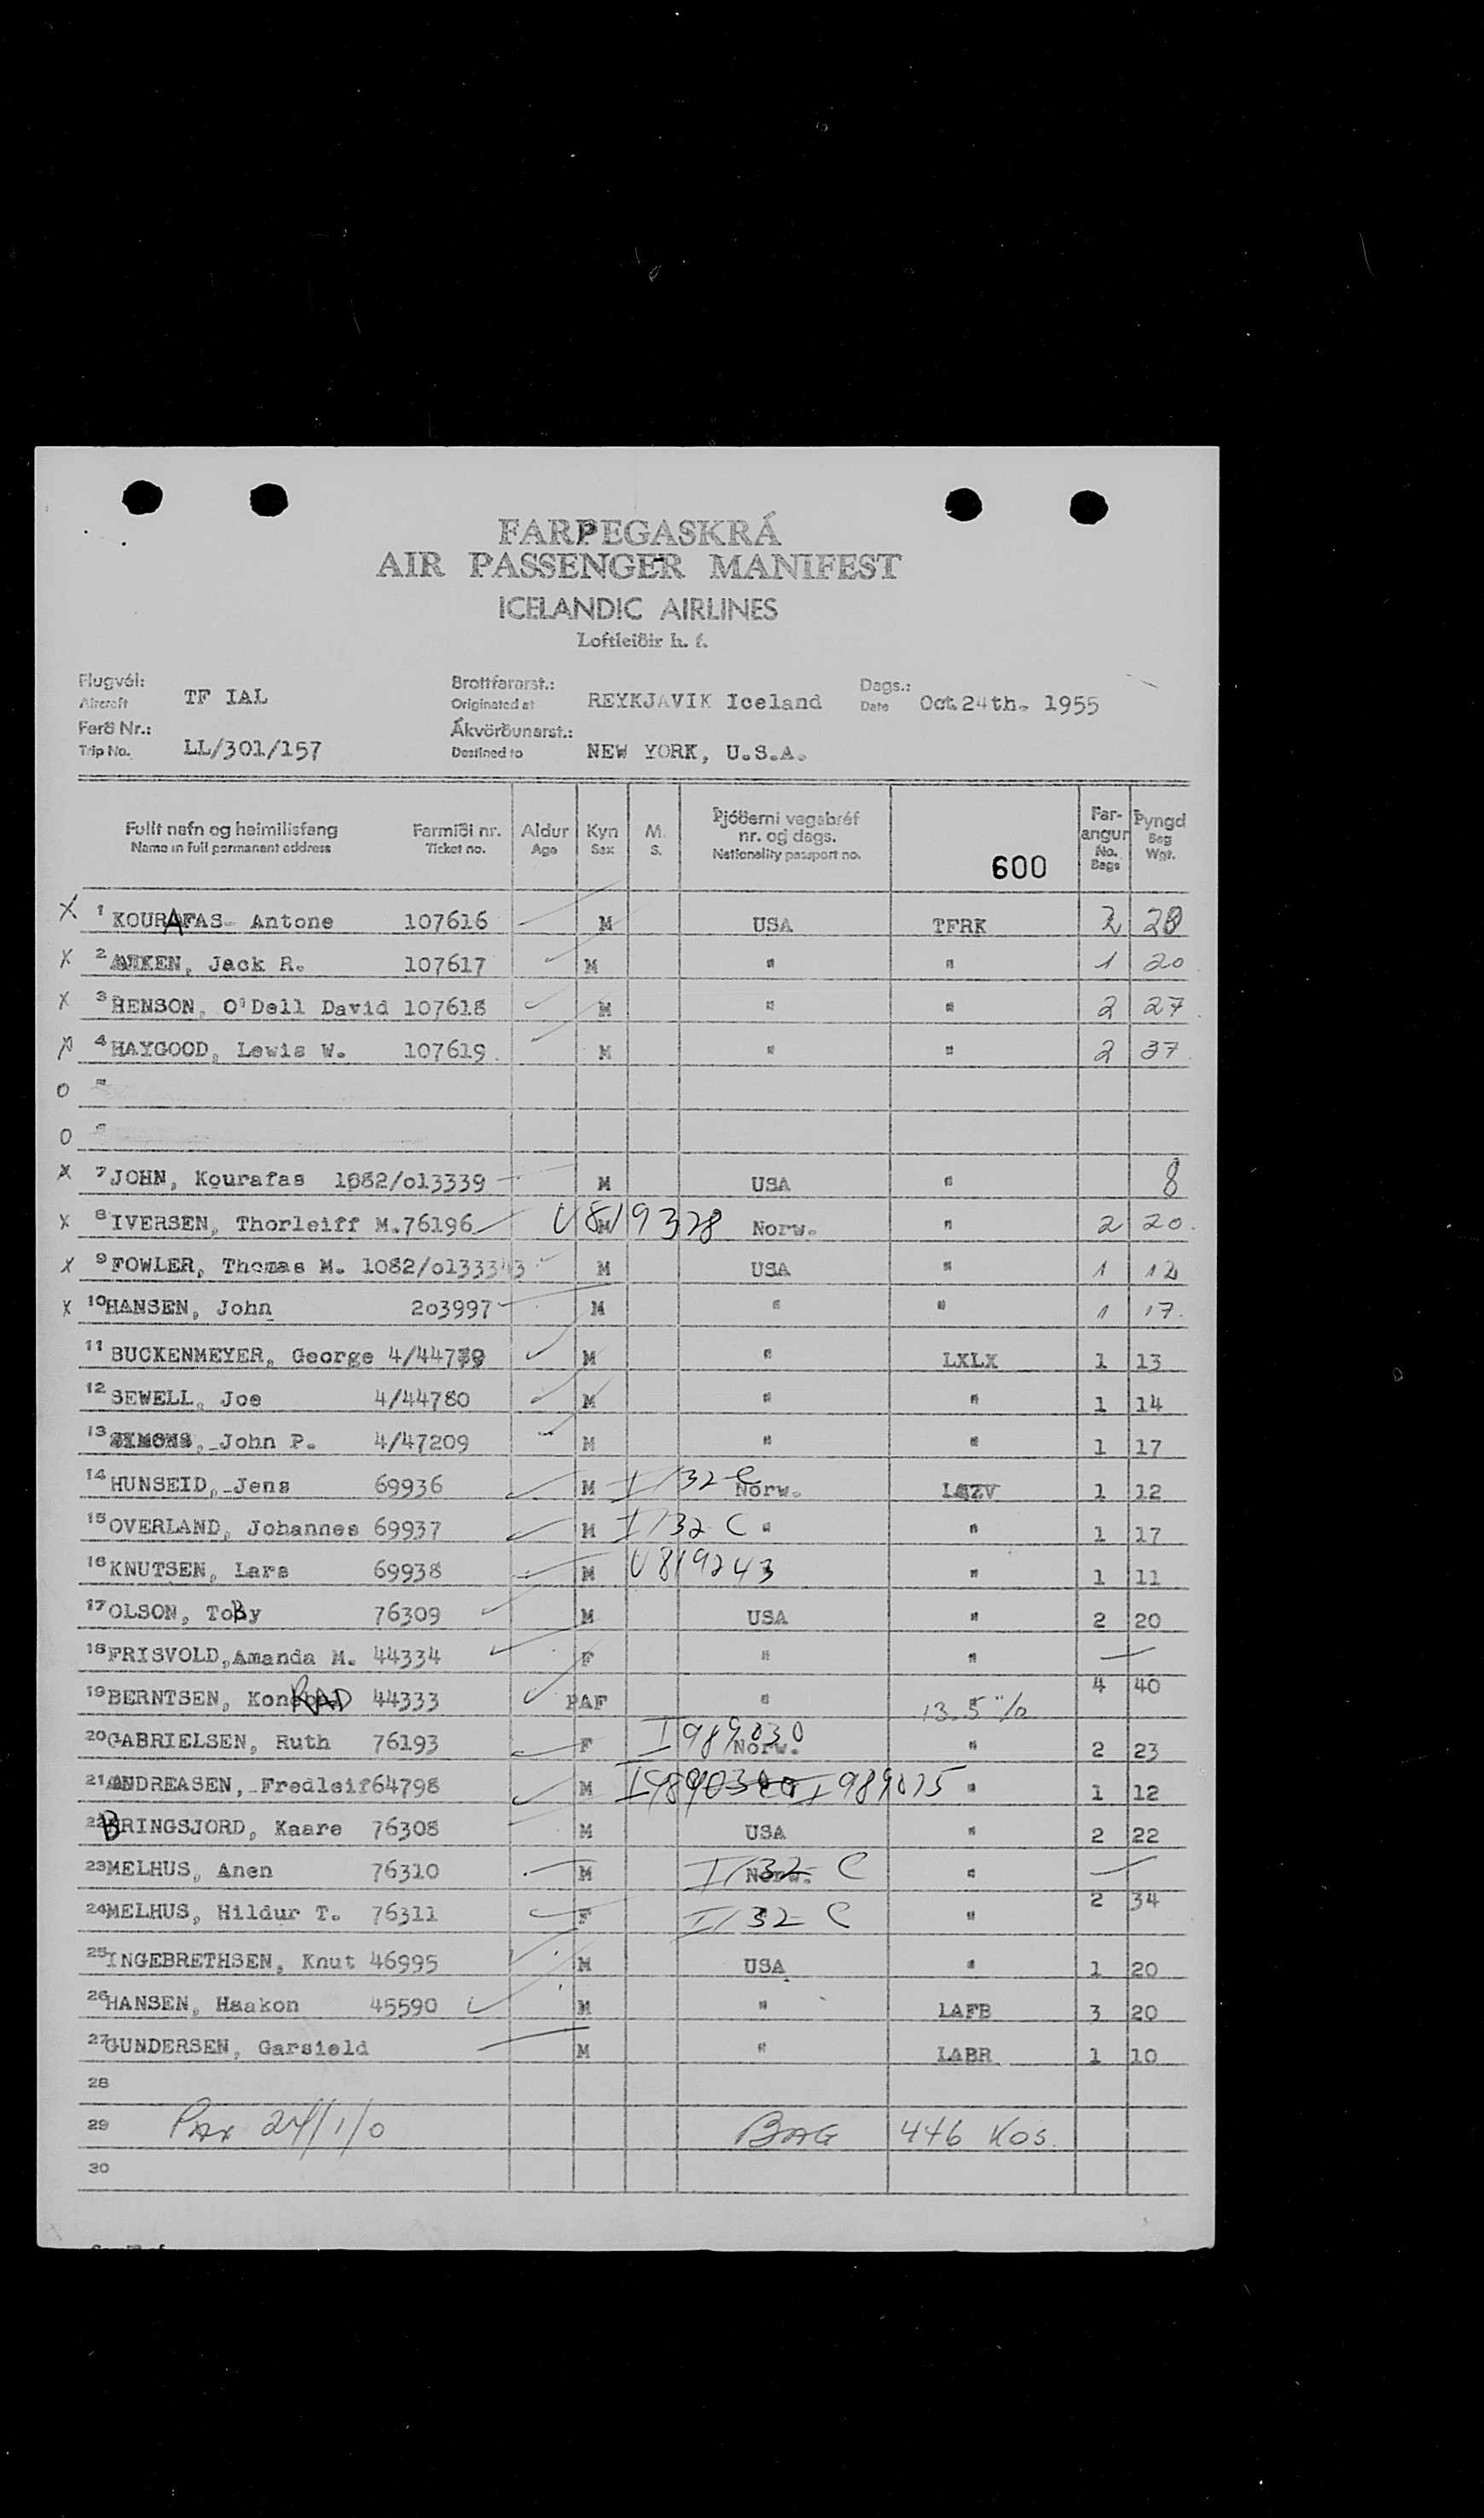 FARÞEGASKRÁ
AIR PASSENGER MANIFEST
ICELANDIC AIRLINES
Loftleiðir h. f.
Flugvél: Aircraft TF IAL Brottfararst.: Originated at REYKJAVIK Iceland Dags.: Date Oct.24th. 1955
Ferð Nr.: Trip No. LL/301/157 Ákvörðunarst.: Destined to NEW YORK, U.S.A.
Fullt nafn og heimilisfang Name in full permanent address Farmiði nr. Ticket no. Aldur Age Kyn Sex M. S. Þjóðerni vegabréf nr. og dags. Nationality passport no. 600 Far-angur No. Bags Þyngd Bag Wgt.
X 1 KOURAFAS- Antone 107616 M USA TFRK 2 28
X 2 AIKEN, Jack R. 107617 M " " 1 20
X 3 HENSON, O'Dell David 107618 M " " 2 27
X 4 HAYGOOD, Lewis W. 107619 M " " 2 37
O
O
X 7 JOHN, Kourafas 1082/o13339 M USA " 8
X 8 IVERSEN, Thorleiff M. 76196 M V819328 Norw. " 2 20
X 9 FOWLER, Thomas M. 1082/o133343 M USA " 1 12
X 10 HANSEN, John 203997 M " " 1 17
11 BUCKENMEYER, George 4/44779 M " LXLX 1 13
12 SEWELL, Joe 4/44780 M " " 1 14
13 SIMONS, John P. 4/47209 M " " 1 17
14 HUNSEID, Jens 69936 M I/32 C Norw. LAZV 1 12
15 OVERLAND, Johannes 69937 M I/32 C " " 1 17
16 KNUTSEN, Lars 69938 M V819243 " 1 11
17 OLSON, ToBy 76309 M USA " 2 20
18 FRISVOLD, Amanda M. 44334 F " "
19 BERNTSEN, KonRAD 44333 " 13.5% 4 40
20 GABRIELSEN, Ruth 76193 F I989030 Norw. " 2 23
21 ANDREASEN, Fredleif 64798 M I989015 " 1 12
22 BRINGSJORD, Kaare 76308 M USA " 2 22
23 MELHUS, Anen 76310 M I/32 C Norw. "
24 MELHUS, Hildur T. 76311 F I/32 C " 2 34
25 INGEBRETHSEN, Knut 46995 M USA " 1 20
26 HANSEN, Haakon 45590 M " LAFB 3 20
27 GUNDERSEN, Garsield M " LABR 1 10
28
29 PAX 24/1/0 BAG 446 KOS.
30